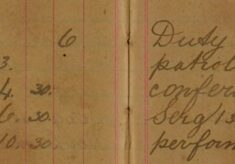 6 Duty
3. patrol
4. 30. confer
6. 30. Serg 13
10. 30. perform